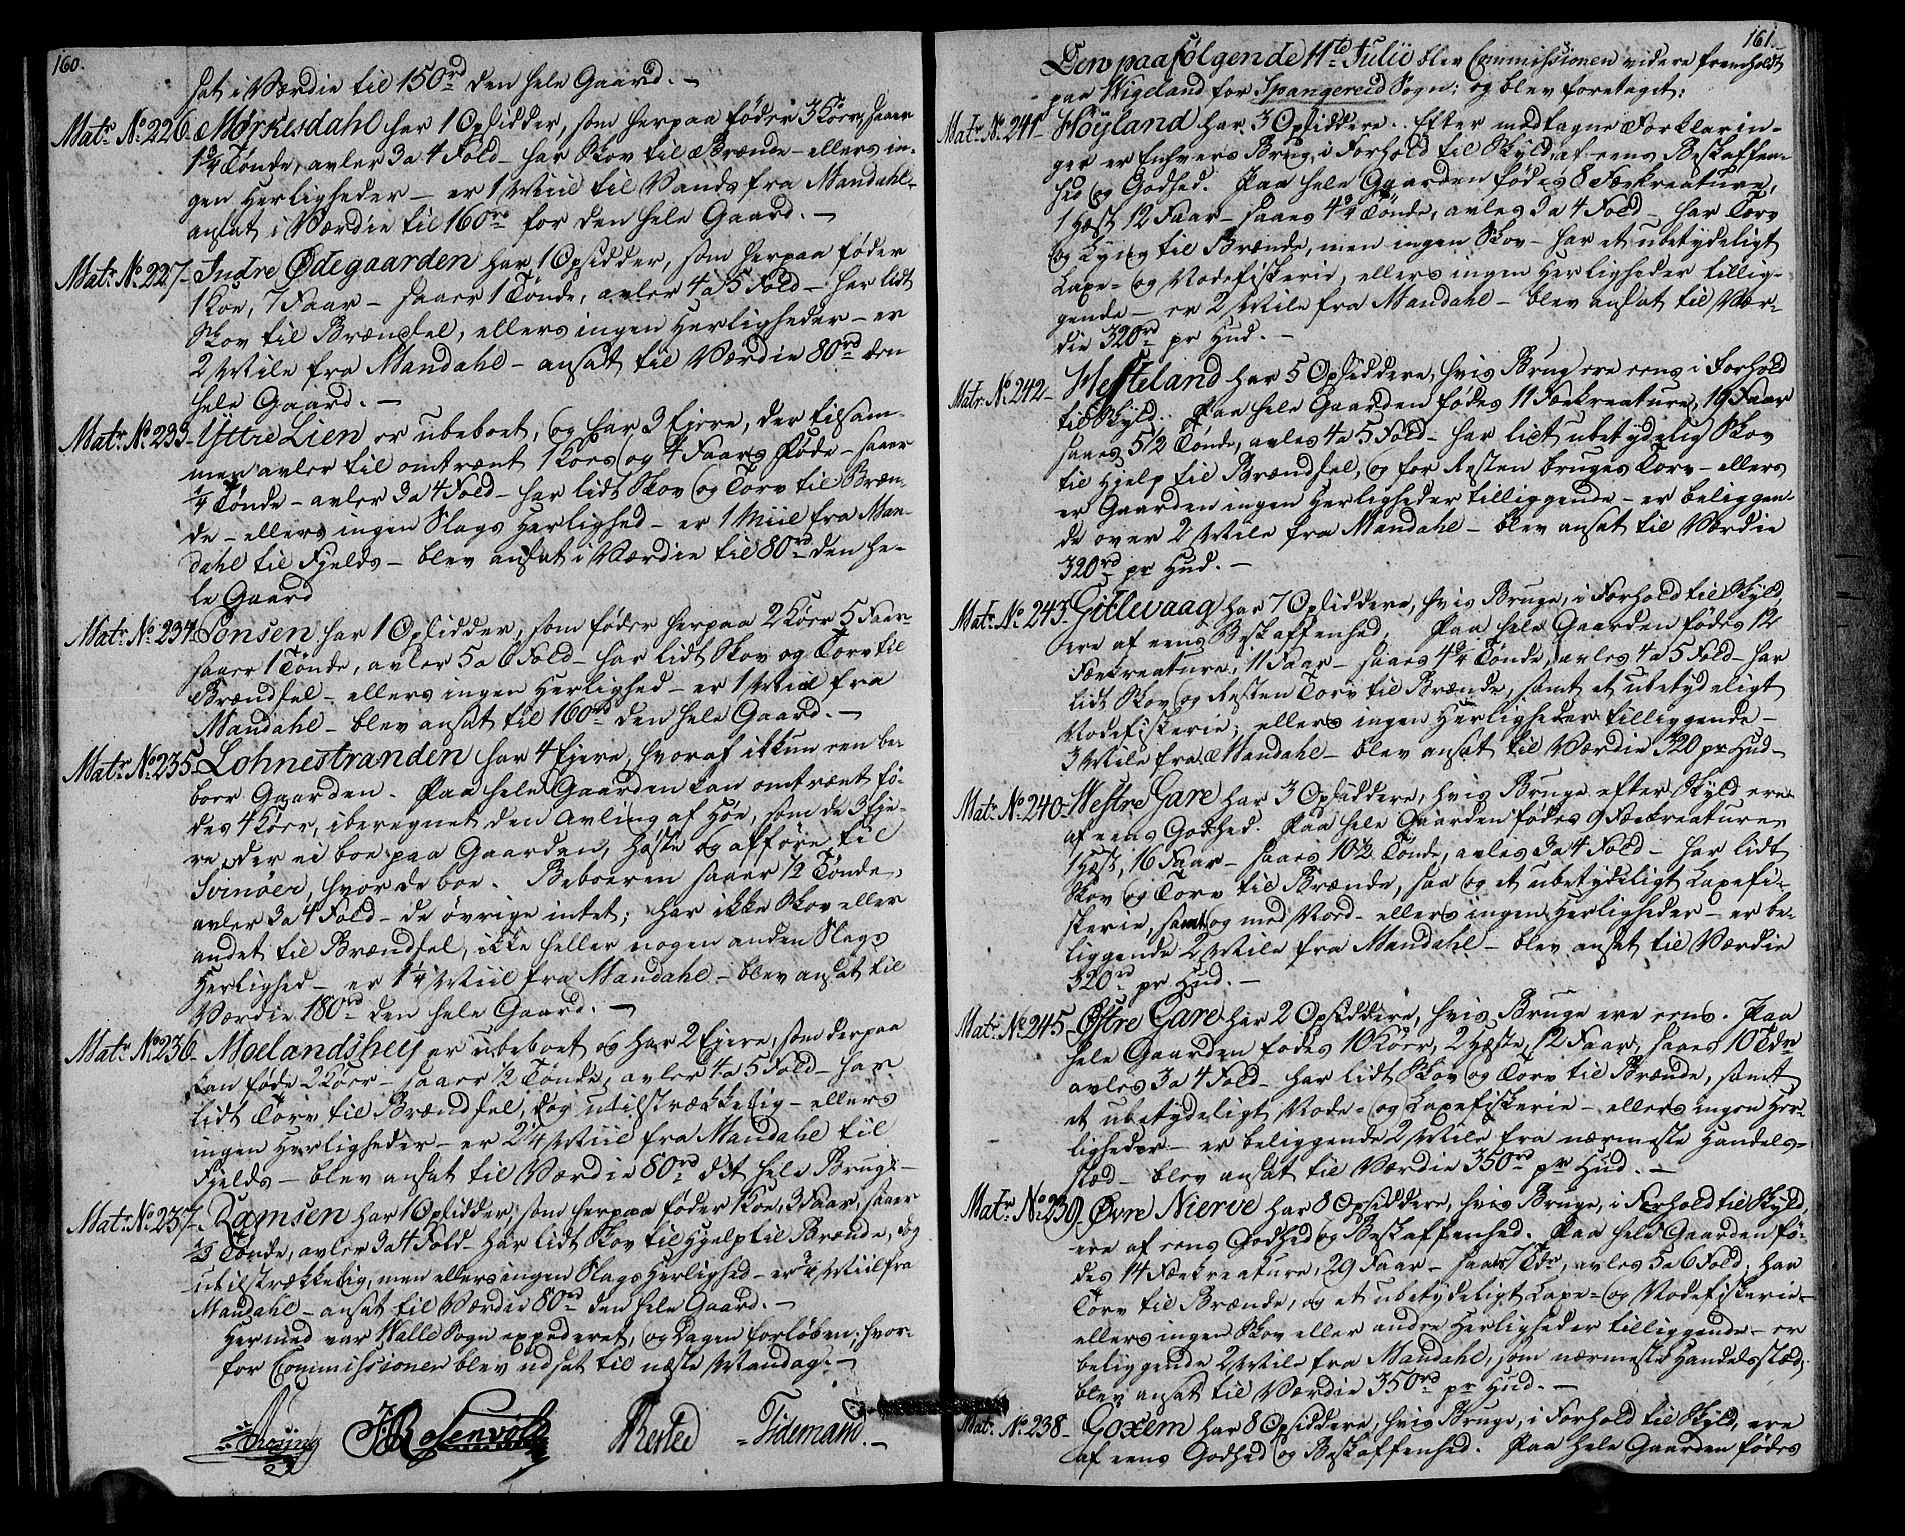 160.
sat i Værdie til 150rd den hele Gaard. —
Matr. No. 226. Mørkesdahl har 1 Opsidder, som herpaa føder 3 Køer, saaer
1¾ Tønde, avler 3 a 4 Fold — har Skov til Brænde — ellers in-
gen Herligheder — er 1 Miil til Vands fra Mandahl —
ansat i Værdie til 160rd for den hele Gaard. —
Matr. No. 227 — Indre Ødegaarden har 1 Opsidder, som herpaa føder
1 Koe, 7 Faar — saaer 1 Tønde, avler 4 a 5 Fold — har lidt
Skov til Brændsel, ellers ingen Herligheder — er
2 Mile fra Mandahl — ansat til Værdie 80rd den
hele Gaard. —
Matr. No. 233 — Yttre Lien er ubeboet, og har 3 Ejere, der tilsam-
men avler til omtrent 1 Koes og 4 Faars Føde — saaer
¼ Tønde — avler 3 a 4 Fold — har lidt Skov og Torv til Bræn-
de — ellers ingen Slags Herlighed — er 1 Miil fra Man-
dahl til Fjelds — blev ansat i Værdie til 80rd den he-
le Gaard
Matr. No. 234. Jonsen har 1 Opsidder, som føder herpaa 2 Køer 5 Faar
saaer 1 Tønde, avler 5 a 6 Fold — har lidt Skov og Torv til
Brændsel — ellers ingen Herlighed — er 1 Miil fra
Mandahl — blev ansat til 160rd den hele Gaard. —
Matr. No. 235. Lohnestranden har 4 Ejere, hvoraf ikkun een be-
boer Gaarden. Paa hele Gaarden kan omtrent fø-
des 4 Køer, iberegnet den Avling af Høe, som de 3 Eje-
re, der ei boe paa Gaarden, høste og afføre til
Svinøer, hvor de boe. Beboeren saaer ½ Tønde,
avler 3 a 4 Fold — de øvrige intet; har ikke Skov eller
andet til Brændsel, ikke heller nogen anden Slags
Herlighed — er 1¼ Miil fra Mandahl — blev ansat til
Værdie 180rd den hele Gaard. —
Matr. No. 236. Moelandshey er ubeboet og har 2 Ejere, som derpaa
kan føde 2 Køer — saaer ½ Tønde, avler 4 a 5 Fold — har
lidt Torv til Brændsel, dog utilstrækkelig — ellers
ingen Herligheder — er 2¼ Miil fra Mandahl til
Fjelds — blev ansat til Værdie 80rd det hele Brug. —
Matr. No. 237. Ramsen har 1 Opsidder, som herpaa føder 1 Koe, 3 Faar, saaer
⅓ Tønde, avler 3 a 4 Fold — har lidt Skov til Hjelp til Brænde, dog
utilstrækkelig, men ellers ingen Slags Herlighed — er ¾ Miil fra
Mandahl — ansat til Værdie 80rd den hele Gaard. —
Hermed var Halle Sogn expederet, og Dagen forløben; hvor-
for Commissionen blev udsat til næste Mandag. —
Rosenvold Tidemand. —
161.
Den paafølgende 11te Julii blev Commissionen videre fremholdt
paa Wigeland for Spangereid Sogn; og blev foretaget:
Matr. No. 241 — Høyland har 3 Opsiddere. Efter modtagne Forklarin-
ger er Enhvers Brug, i Forhold til Skyld, af eens Beskaffen-
hed og Godhed. Paa hele Gaarden fødes 8 Fækreature,
1 Hæst, 12 Faar — saaes 4¾ Tønde, avles 3 a 4 Fold — har Torv
og Lyng til Brænde, men ingen Skov — har et ubetydeligt
Laxe- og Nodefiskerie, ellers ingen Herligheder tillig-
gende — er 2 Mile fra Mandahl — blev ansat til Vær-
die 320rd pr Hud. —
Matr. No. 242 — Hesteland har 5 Opsiddere, hvis Brug ere eens i Forhold
til Skyld. Paa hele Gaarden fødes 11 Fækreature, 19 Faar
saaes 5½ Tønde, avles 4 a 5 Fold — har lidt ubetydelig Skov
til Hjelp til Brændsel, og for Resten bruges Torv — ellers
er Gaarden ingen Herligheder tilliggende — er beliggen-
de over 2 Mile fra Mandahl — blev ansat til Værdie
320rd pr Hud. —
Matr. No. 243. Gitlevaag har 7 Opsiddere, hvis Bruge, i Forhold til Skyld,
ere af eens Beskaffenhed. Paa hele Gaarden fødes 12
Fækreature, 11 Faar — saaes 4¾ Tønde, avles 4 a 5 Fold — har
lidt Skov og Resten Torv til Brænde, samt et ubetydeligt
Nodefiskerie; ellers ingen Herligheder tilliggende —
3 Mile fra Mandahl — blev ansat til Værdie 320 pr Hud —
Matr. No. 240 — Westre Gare har 3 Opsiddere, hvis Bruge efter Skyld ere
af eens Godhed. Paa hele Gaarden fødes 9 Fækreature
1 Hæst, 16 Faar — saaes 10½ Tønde, avles 3 a 4 Fold — har lidt
Skov og Torv til Brænde, saa og et ubetydeligt Laxefi-
skerie, samt og med Nord — ellers ingen Herligheder — er be-
liggende 2 Mile fra Mandahl — blev ansat til Værdie
320rd pr Hud. —
Matr. No. 245. Østre Gare har 2 Opsiddere, hvis Bruge ere eens. Paa
hele Gaarden fødes 10 Køer, 2 Hæste, 12 Faar, saaes 10 Tdr
avles 3 a 4 Fold — har lidt Skov og Torv til Brænde, samt
et ubetydeligt Node- og Laxefiskerie — ellers ingen Her-
ligheder — er beliggende 2 Mile fra nærmeste Handels-
stæd — blev ansat til Værdie 350rd pr Hud. —
Matr. No. 239. Øvre Nierve har 8 Opsiddere, hvis Bruge, i Forhold til Skyld,
ere af eens Godhed og Beskaffenhed. Paa hele Gaarden fø-
des 14 Fækreature, 29 Faar — saaes 7 Tdr, avles 5 a 6 Fold; har
Torv til Brænde, og et ubetydeligt Laxe- og Nodefiskerie —
ellers ingen Skov eller andre Herligheder tilliggende — er
beliggende 2 Mile fra Mandahl, som nærmeste Handelsstæd;
blev ansat til Værdie 350rd pr Hud. —
Matr. No. 238 — Goxem har 8 Opsiddere, hvis Bruge, i Forhold til Skyld, ere
af eens Godhed og Beskaffenhed. Paa hele Gaarden fødes